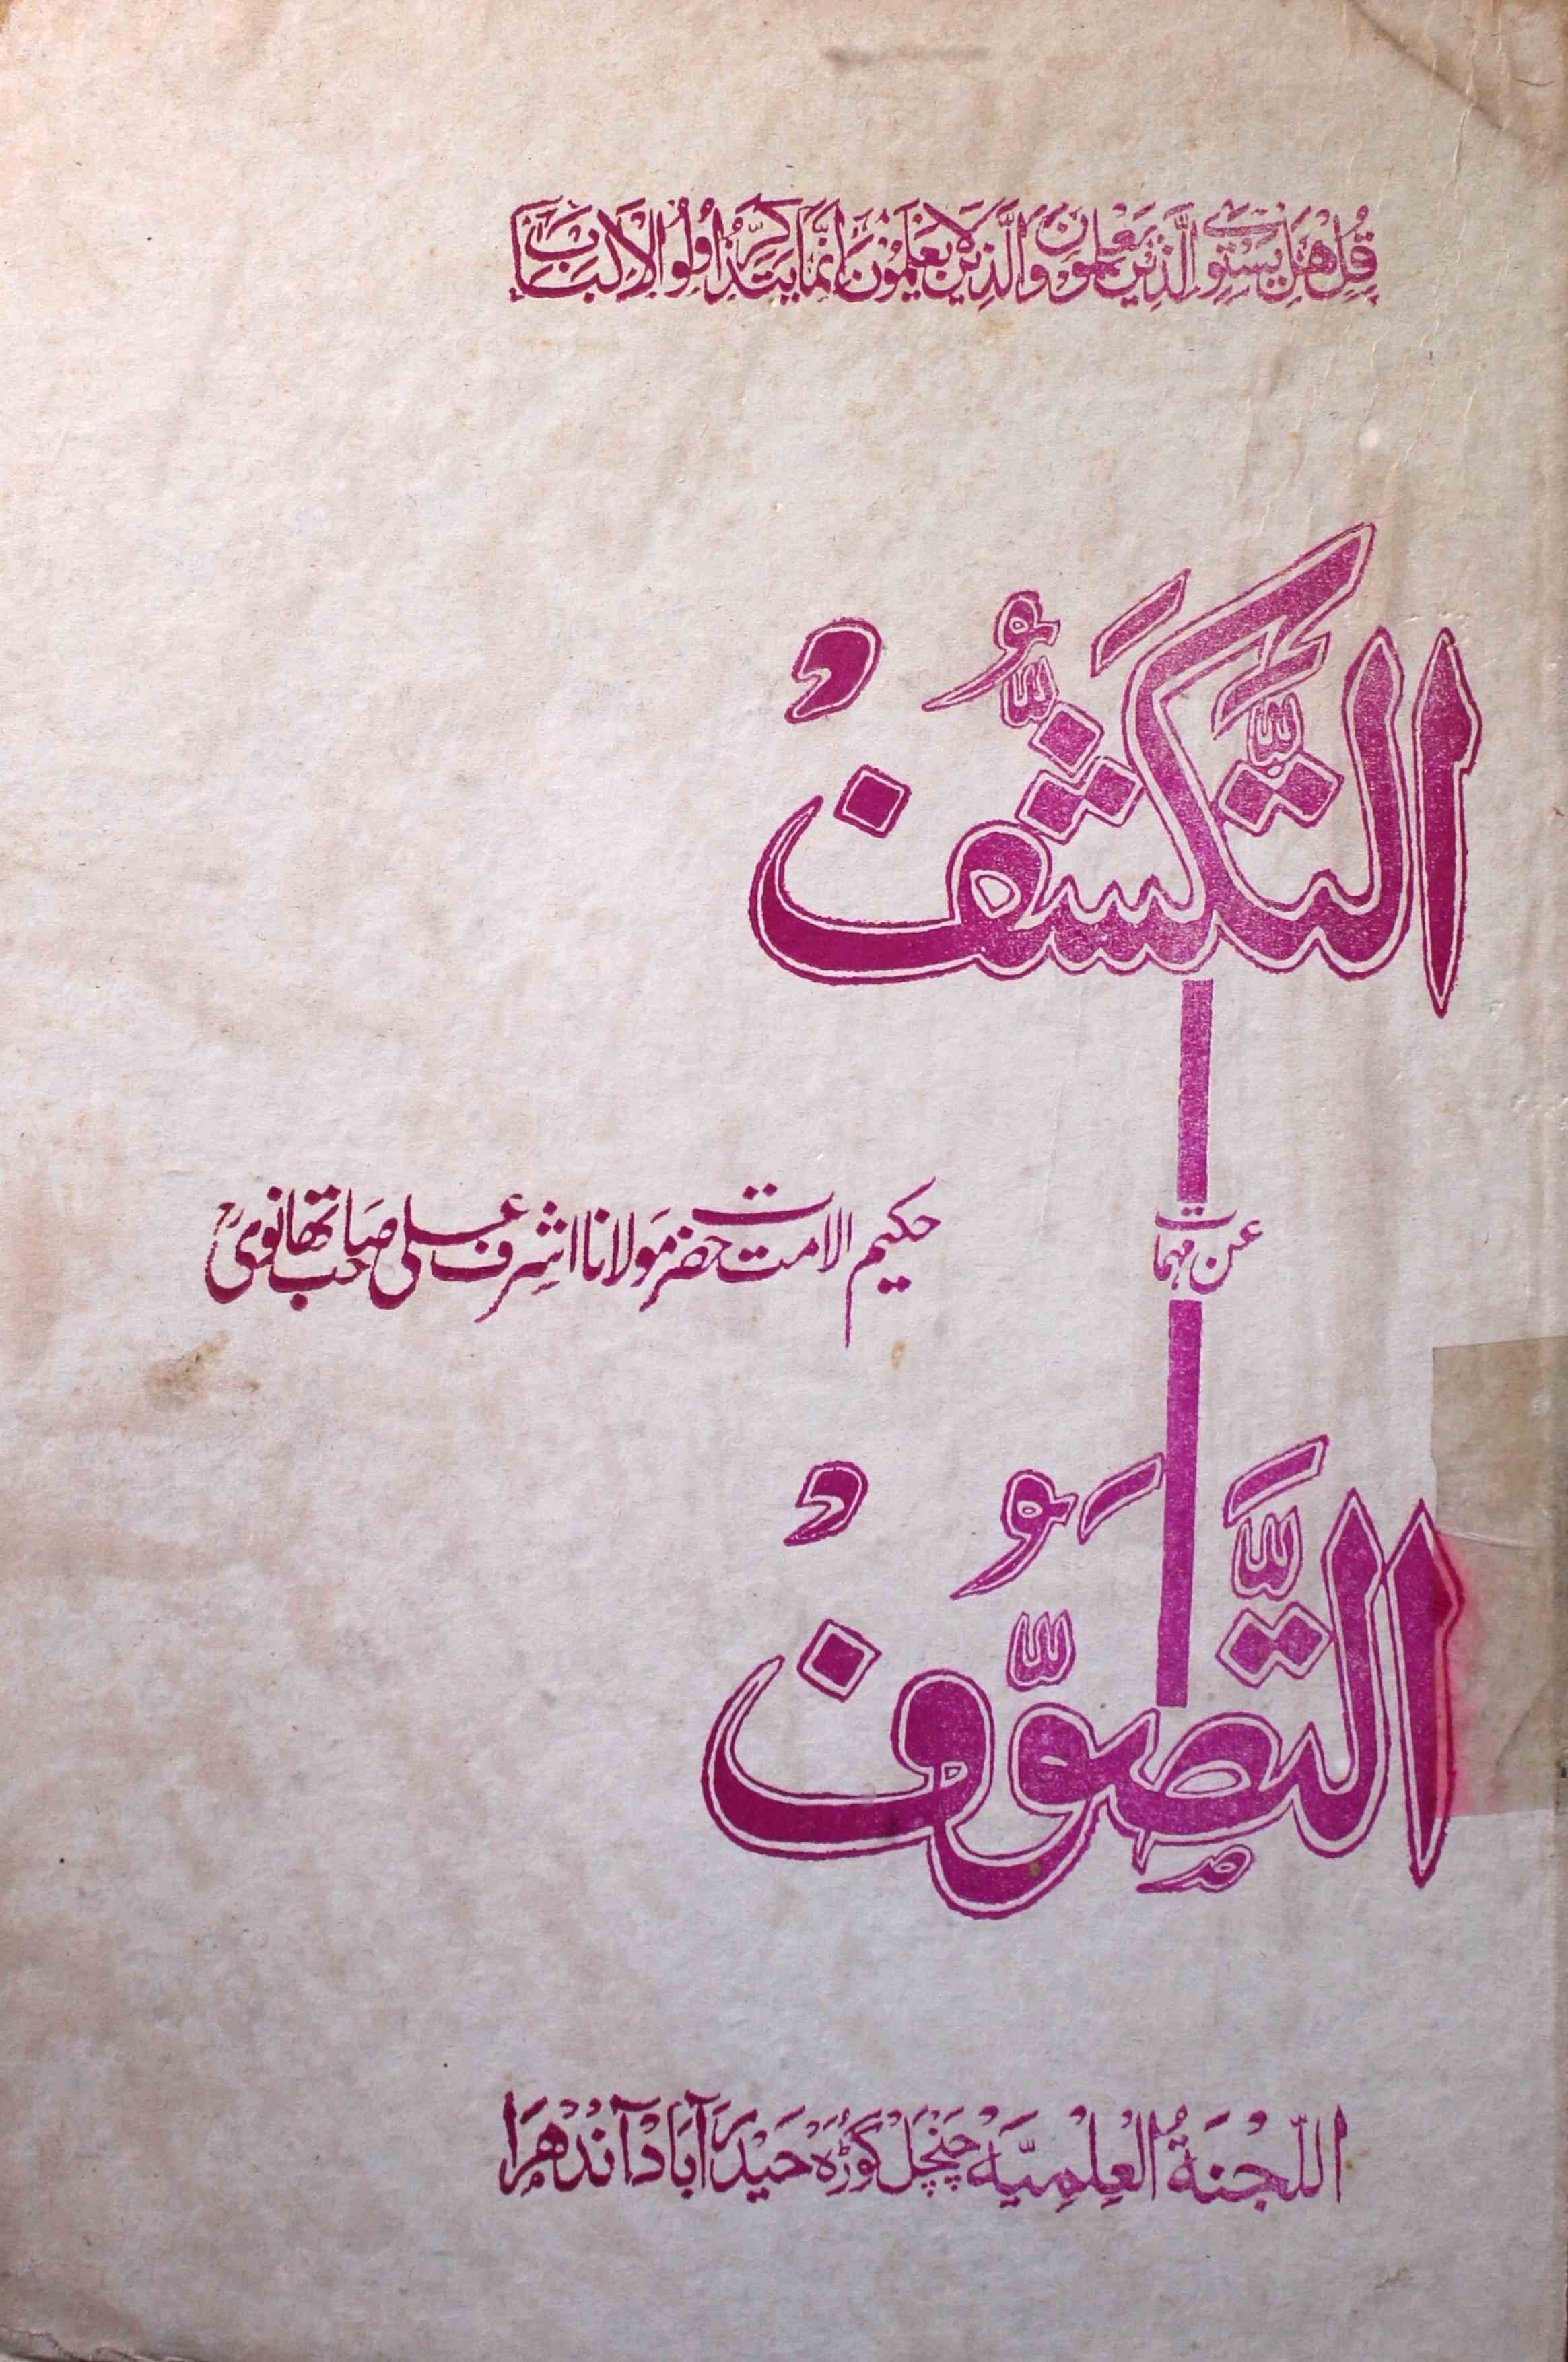 قُلْ هَلْ يَسْتَوِي الَّذِيْنَ يَعْلَمُوْنَ وَالَّذِيْنَ لَا يَعْلَمُوْنَ اِنَّمَا يَتَذَكَّرُ اُولُو الْاَلْبَابِ
التَّكَشُّفْ
عن مہمات
حکیم الامت حضرت مولانا اشرف علی صاحب تھانویؒ
التَّصَوُّفْ
اللَّجْنَةُ الْعِلْمِيَّه چَنْچَلْ گوڑہ حَيْدَرَآبَادْ آنْدھْرَا